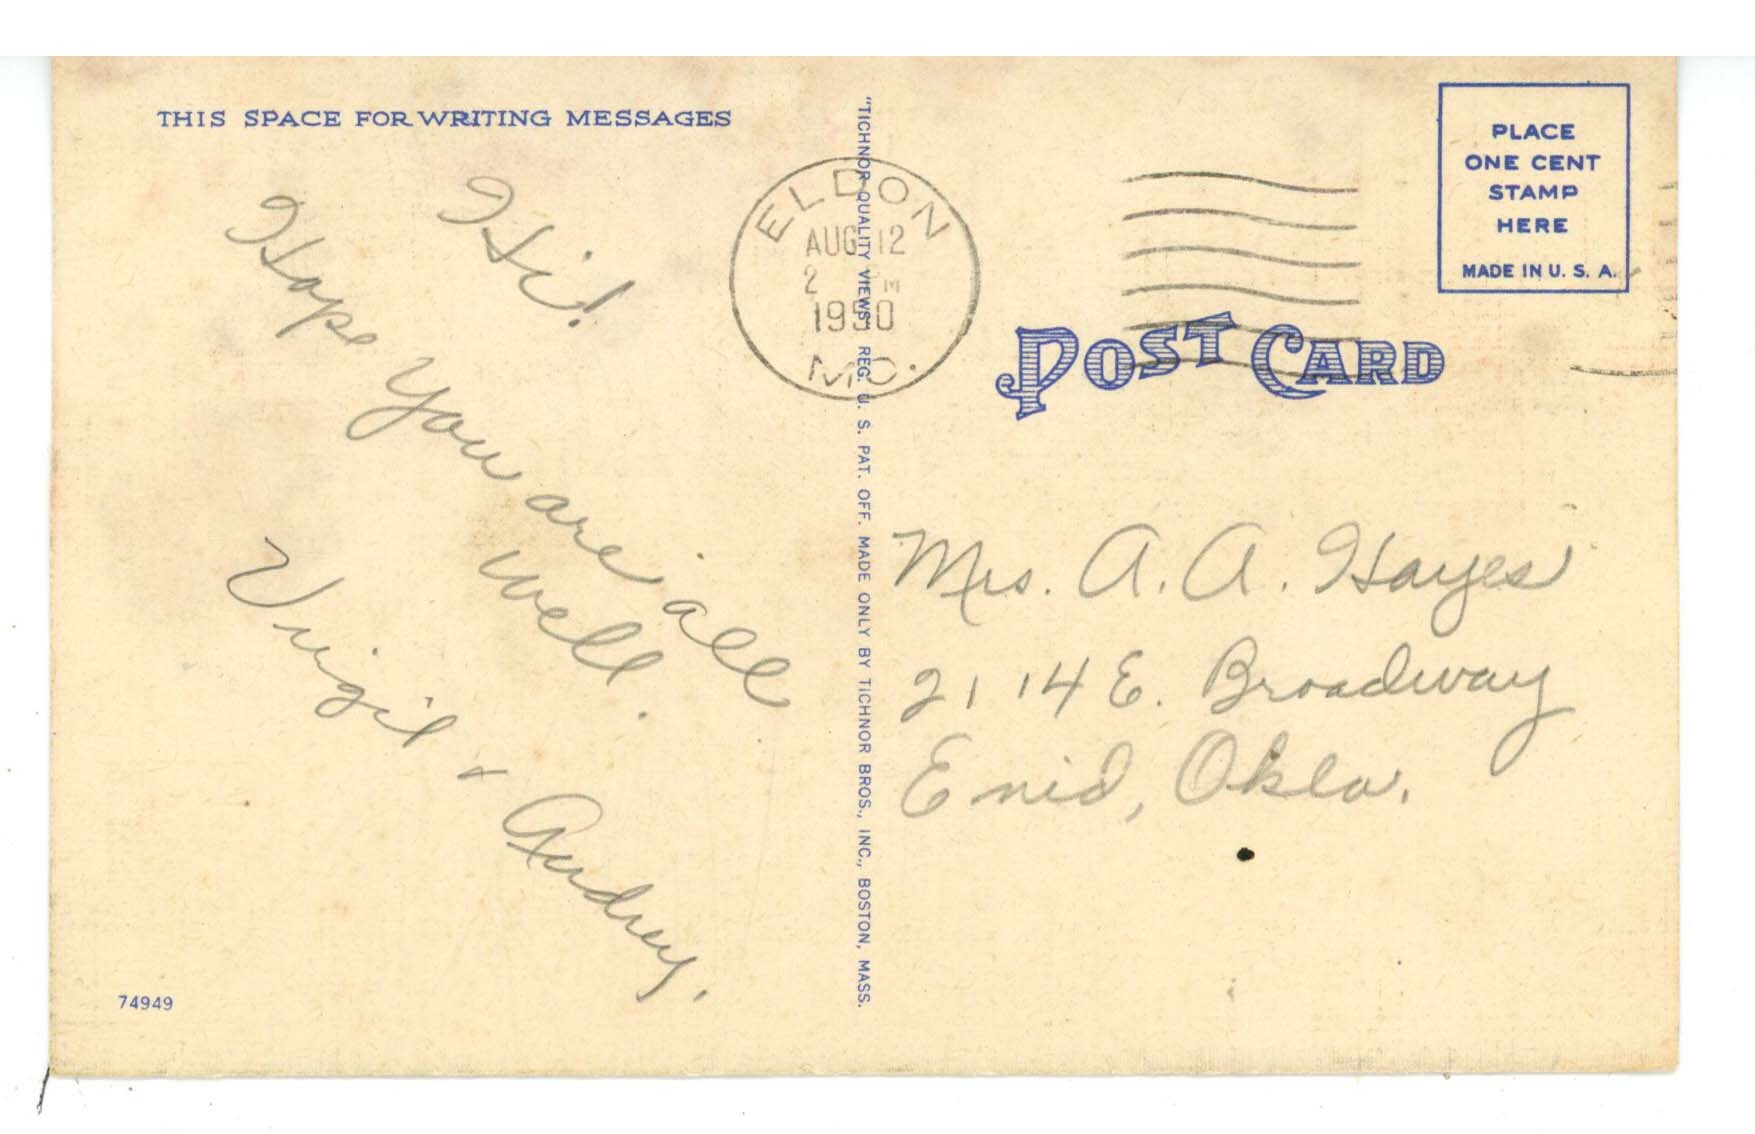 THIS SPACE FOR WRITING MESSAGES
Hi!
Hope you are all
well.
Virgil + Audrey.
74949
"TICHNOR QUALITY VIEWS" REG. U. S. PAT. OFF. MADE ONLY BY TICHNOR BROS., INC., BOSTON, MASS.
ELDON
AUG 12
2 PM
1950
MO.
PLACE
ONE CENT
STAMP
HERE
MADE IN U. S. A.
POST CARD
Mrs. A. A. Hayes
2114 E. Broadway
Enid, Okla.